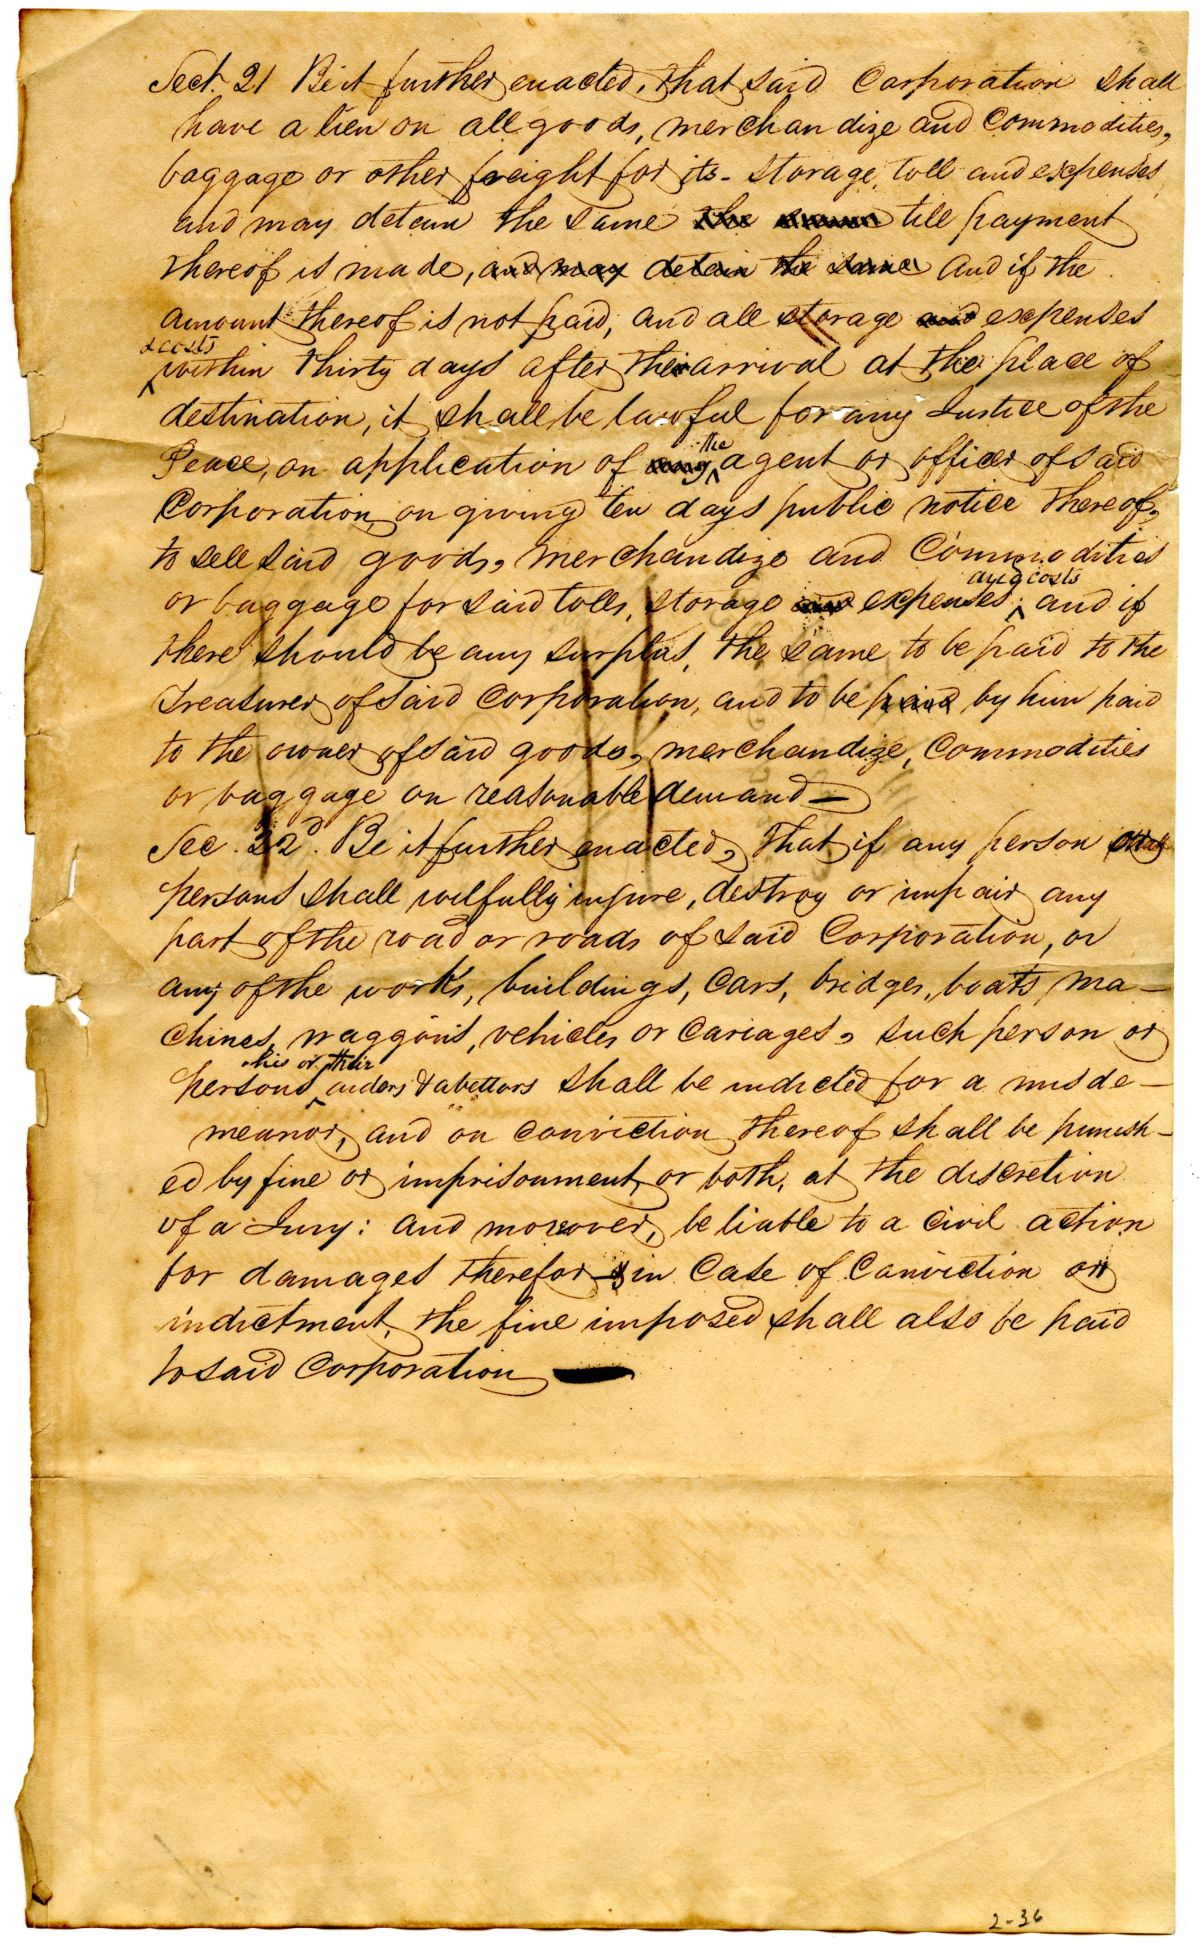 Sect. 21 Be it further enacted, that said Corporation shall
have a lien on all goods, merchandize and Commodities,
baggage or other freight for its storage, toll and expenses
and may detain the same the till payment
thereof is made, and may detain the same and if the
amount thereof is not paid, and all storage and expenses
& costs
within thirty days after their arrival at the place of
destination, it shall be lawful for any Justice of the
Peace, on application of any the agent or officer of said
Corporation, on giving ten days public notice thereof,
to sell said goods, merchandize and Commodities
or baggage for said tolls, storage and expenses and costs, and if
there should be any surplus, the same to be paid to the
Treasurer of said Corporation, and to be paid by him paid
to the owner of said goods, merchandize, Commodities
or baggage on reasonable demand —
Sec. 22d. Be it further enacted, that if any person or
persons shall wilfully injure, destroy or impair any
part of the road or roads of said Corporation, or
any of the works, buildings, Cars, bridges, boats, ma-
chines, waggons, vehicles or Cariages, such person or
persons, his or their aiders & abettors shall be indicted for a misde-
meanor, and on conviction thereof shall be punish-
ed by fine or imprisonment, or both, at the discretion
of a Jury: and moreover, be liable to a civil action
for damages therefor in Case of Conviction on
indictment, the fine imposed shall also be paid
to said Corporation —
2-36